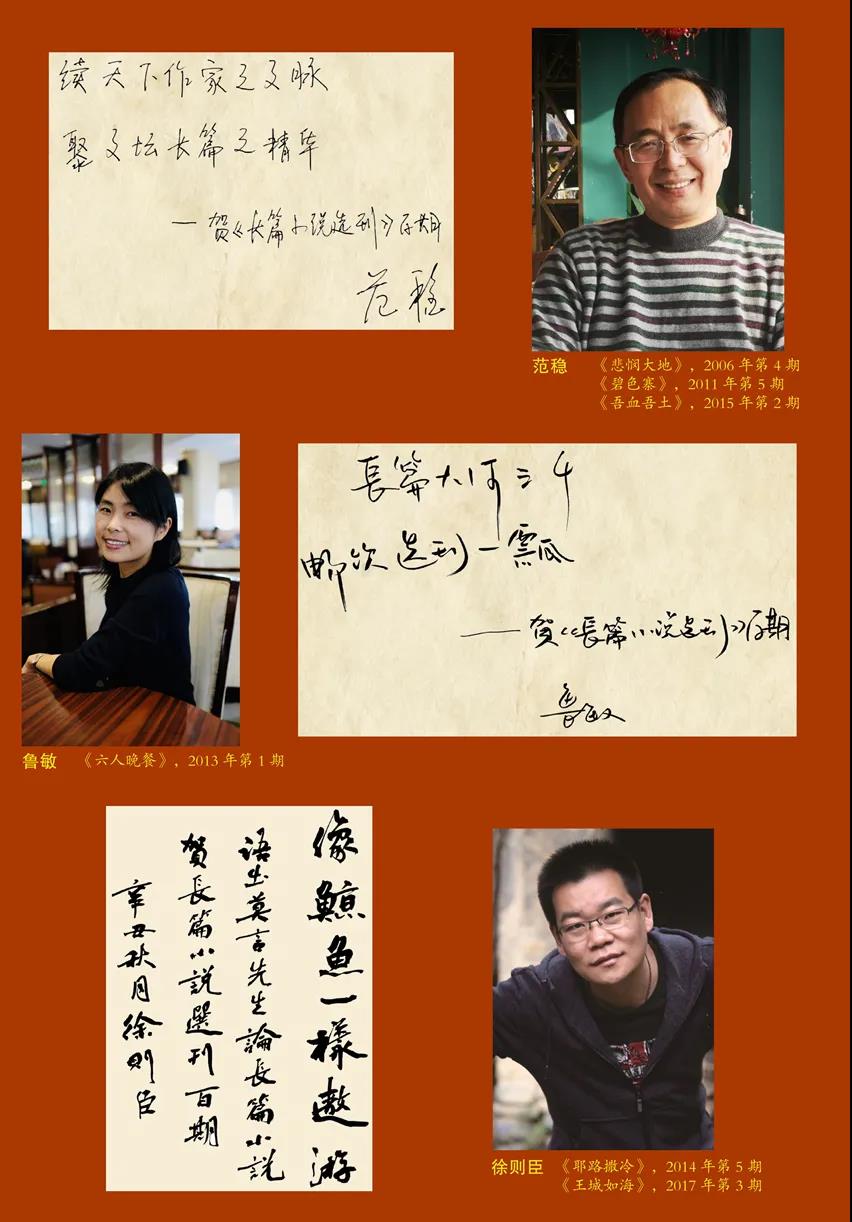 续天下作家之文脉
聚文坛长篇之精华
—贺《长篇小说选刊》百期
范稳
范稳 《悲悯大地》，2006 年第 4 期
《碧色寨》，2011 年第 5 期
《吾血吾土》，2015 年第 2 期
長篇大河三千
每次选刊一瓢
——贺《長篇小说选刊》百期
鲁敏
鲁敏 《六人晚餐》，2013 年第 1 期
像鯨魚一樣遨游
语出莫言先生論長篇小説
賀長篇小説選刊百期
辛丑秋月徐则臣
徐则臣 《耶路撒冷》，2014 年第 5 期
《王城如海》，2017 年第 3 期